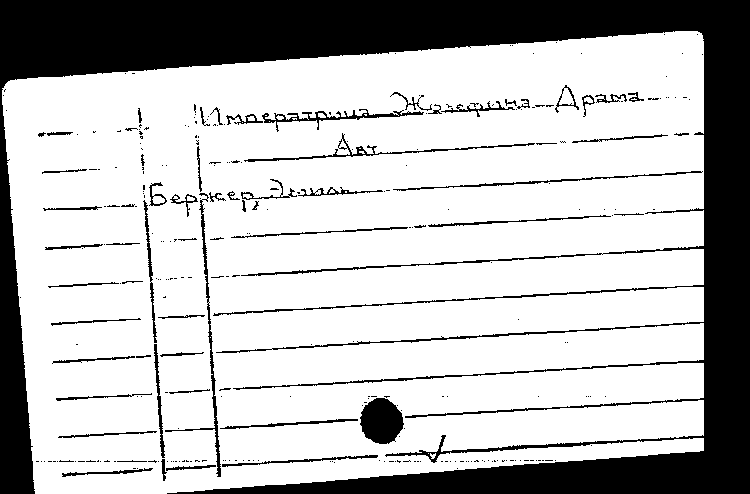 Императрица Жозефина Драма
Авт
Бержер, Эмиль